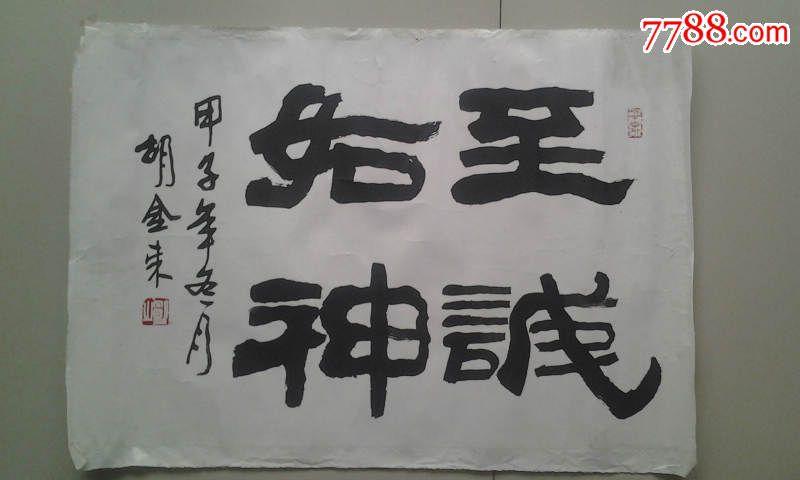 至誠
如神
甲子年冬月
胡金来
7788.com